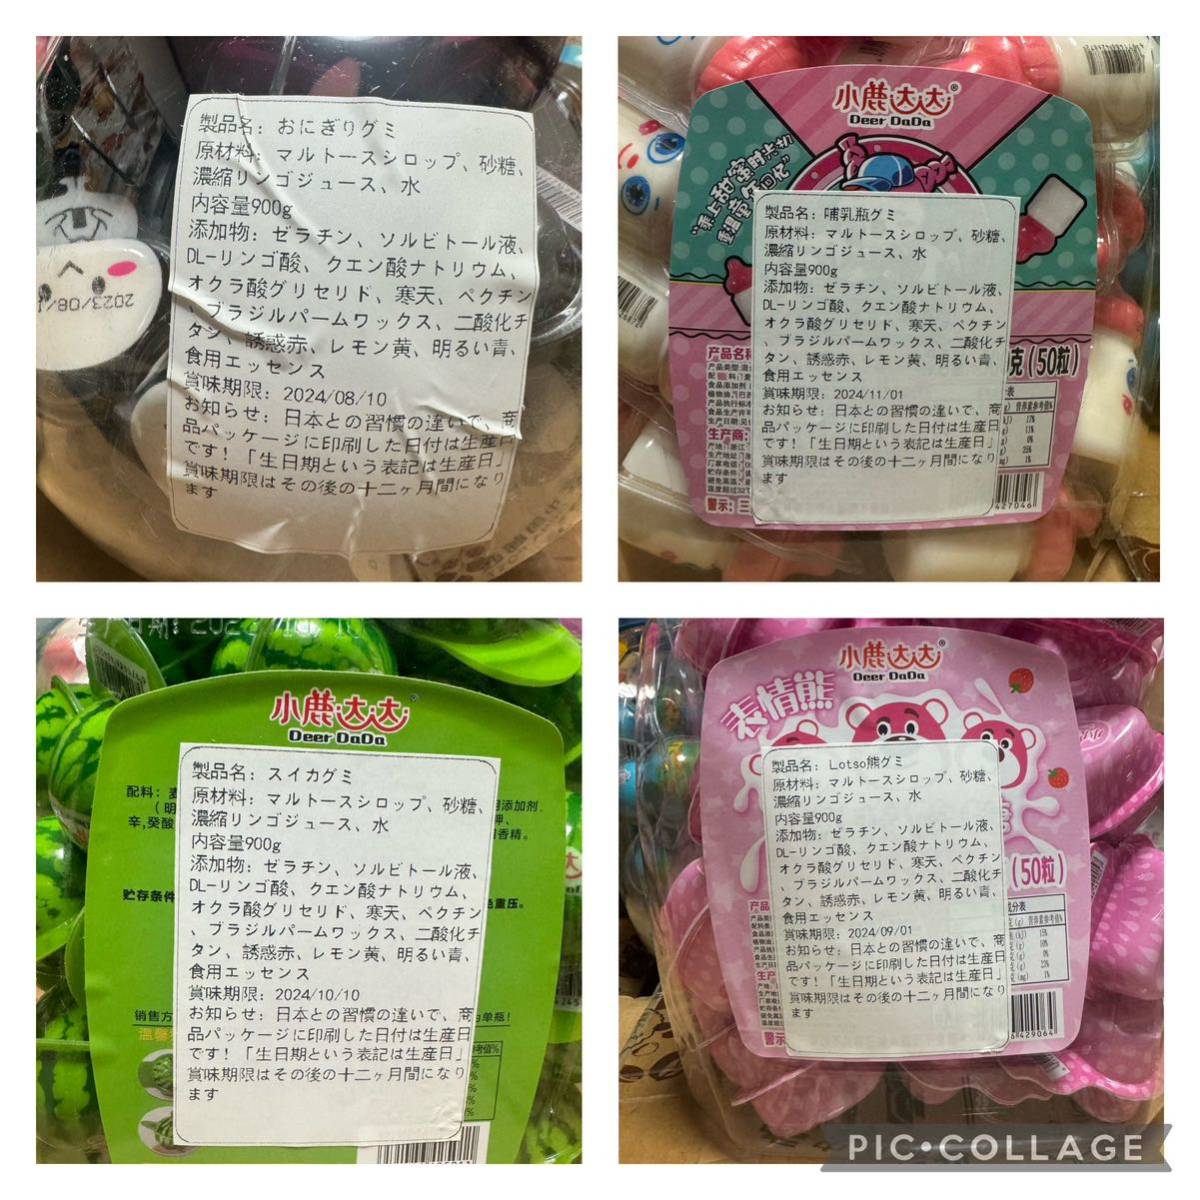 製品名: おにぎりグミ
原材料: マルトースシロップ、砂糖、
濃縮リンゴジュース、水
内容量900g
添加物: ゼラチン、ソルビトール液、
DL-リンゴ酸、クエン酸ナトリウム、
オクラ酸グリセリド、寒天、ペクチン
、ブラジルパームワックス、二酸化チ
タン、誘惑赤、レモン黄、明るい青、
食用エッセンス
賞味期限: 2024/08/10
お知らせ: 日本との習慣の違いで、商
品パッケージに印刷した日付は生産日
です! 「生日期という表記は生産日」
賞味期限はその後の十二ヶ月間になり
ます
2023/08/1
小鹿达达®
Deer DaDa
製品名: 哺乳瓶グミ
原材料: マルトースシロップ、砂糖、
濃縮リンゴジュース、水
内容量900g
添加物: ゼラチン、ソルビトール液、
DL-リンゴ酸、クエン酸ナトリウム、
オクラ酸グリセリド、寒天、ペクチン
、ブラジルパームワックス、二酸化チ
タン、誘惑赤、レモン黄、明るい青、
食用エッセンス
賞味期限: 2024/11/01
お知らせ: 日本との習慣の違いで、商
品パッケージに印刷した日付は生産日
です! 「生日期という表記は生産日」
賞味期限はその後の十二ヶ月間になり
ます
克(50粒)
产品名称
生产商:
警示: 三
427046
小鹿达达®
Deer DaDa
配料: 麦
(明
辛,癸酸
用添加剂.
香精。
贮存条件
重压。
销售方
单瓶!
温馨
製品名: スイカグミ
原材料: マルトースシロップ、砂糖、
濃縮リンゴジュース、水
内容量900g
添加物: ゼラチン、ソルビトール液、
DL-リンゴ酸、クエン酸ナトリウム、
オクラ酸グリセリド、寒天、ペクチン
、ブラジルパームワックス、二酸化チ
タン、誘惑赤、レモン黄、明るい青、
食用エッセンス
賞味期限: 2024/10/10
お知らせ: 日本との習慣の違いで、商
品パッケージに印刷した日付は生産日
です! 「生日期という表記は生産日」
賞味期限はその後の十二ヶ月間になり
ます
小鹿达达®
Deer DaDa
表情熊
製品名: Lotso熊グミ
原材料: マルトースシロップ、砂糖、
濃縮リンゴジュース、水
内容量900g
添加物: ゼラチン、ソルビトール液、
DL-リンゴ酸、クエン酸ナトリウム、
オクラ酸グリセリド、寒天、ペクチン
、ブラジルパームワックス、二酸化チ
タン、誘惑赤、レモン黄、明るい青、
食用エッセンス
賞味期限: 2024/09/01
お知らせ: 日本との習慣の違いで、商
品パッケージに印刷した日付は生産日
です! 「生日期という表記は生産日」
賞味期限はその後の十二ヶ月間になり
ます
(50粒)
警示
429064
PIC•COLLAGE